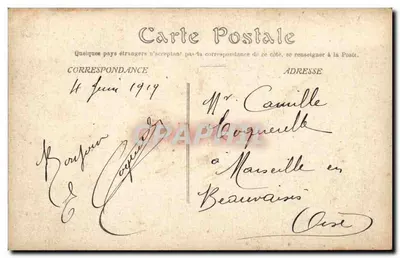 Carte Postale
Quelques pays étrangers n'acceptent pas la correspondance de ce côté, se renseigner à la Poste.
CORRESPONDANCE
4 Juin 1919
Bonjour
E
ADRESSE
Mr. Camille
à
Marseille en
Beauvaisis
Oise
CPAPHIL